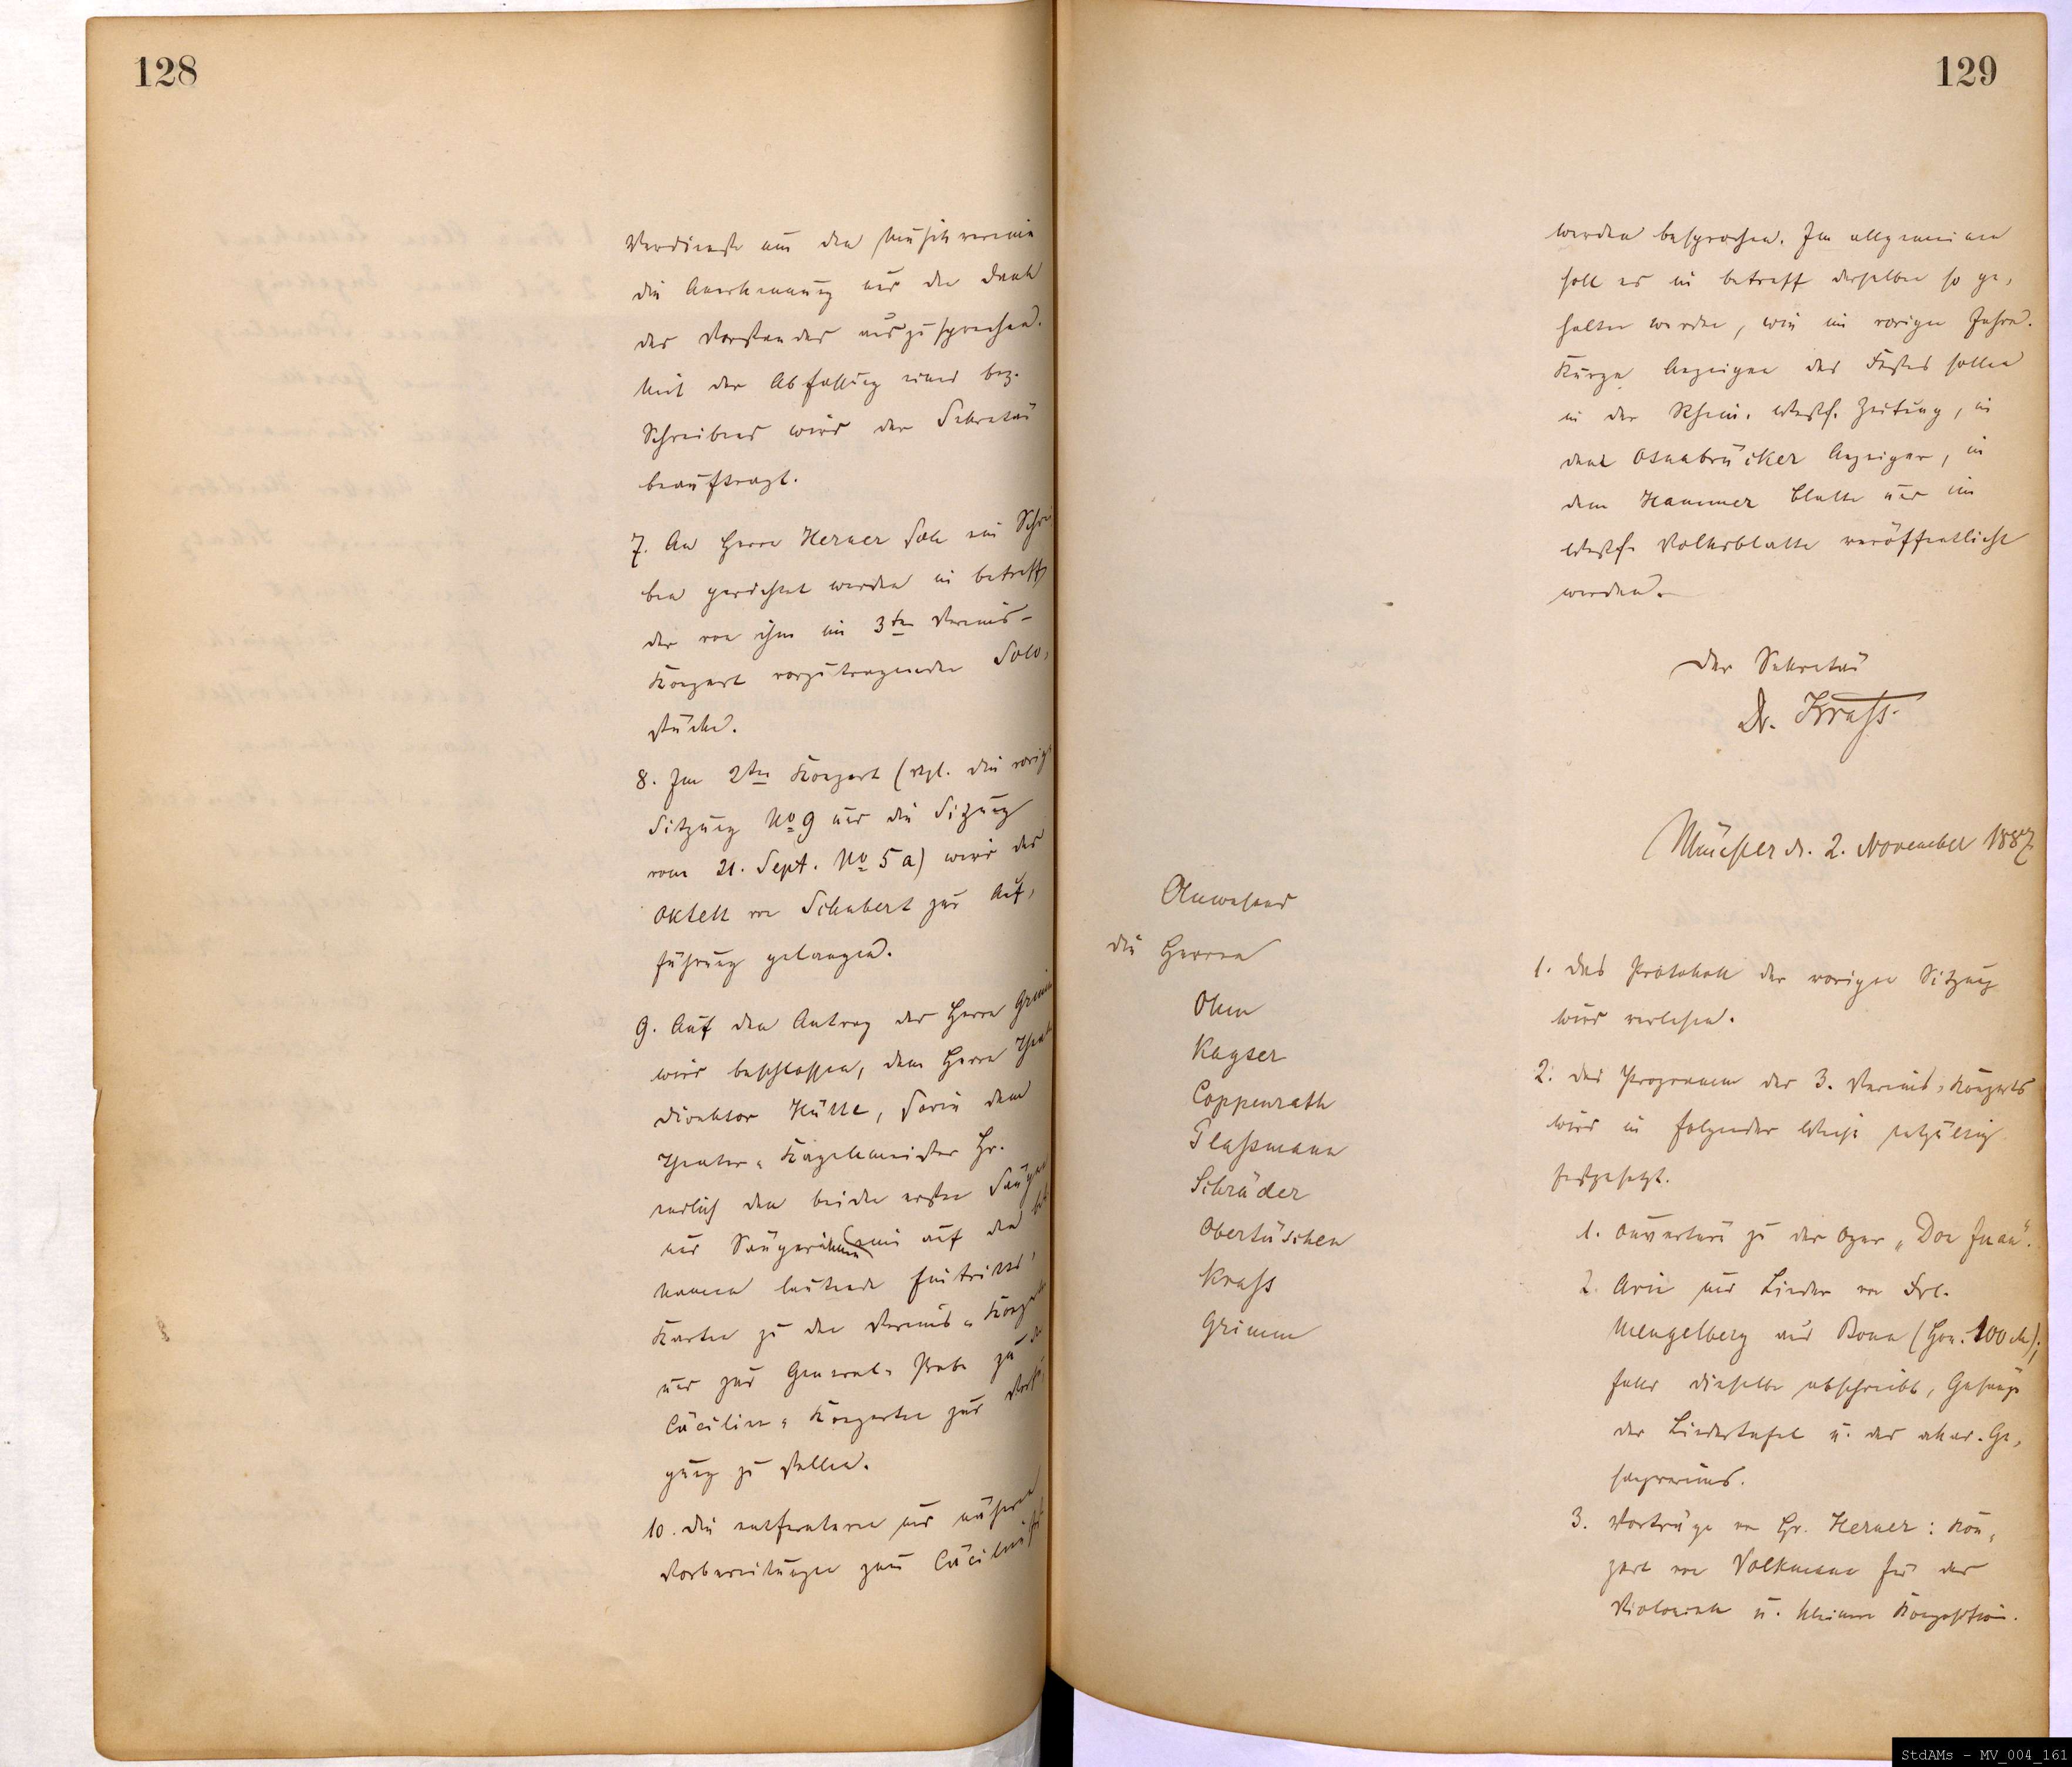 128
Verdienste um den Musikverein
die Anerkennung und den Dank
des Vorstandes auszusprechen.
Mit der Abfassung eines bez.
Schreibens wird der Sekretär
beauftragt.
7. An Herrn Herner soll ein Schrei
ben gerichtet werden in betreff
der von ihm im 3ten Vereins-
Konzert vorzutragenden Solo,
stücke.
8. Im 2ten Konzert (vgl. die vorige
Sitzung No 9 und die Sitzung
vom 21. Sept. No 5 a) wird das
Oktett von Schubert zur Auf,
führung gelangen.
9. Auf den Antrag des Herrn Grimm
wird beschlossen, dem Herrn Theater
Direktor Hütte, sowie dem
Theater-Kapellmeister Hr.
endlich den beiden ersten Sänger
und Sängerinnen auf den
Namen lautende Eintritts,
Karten zu den Vereins-Konzerten
und zur General-Probe zu den
Cäcilien-Konzerten zur Verfü,
gung zu stellen.
10. Die entfernteren und näheren
Vorbereitungen zum Cäcilienfest
129
werden besprochen. Im allgemeinen
soll es in betreff derselben so ge,
halten werden, wie im vorigen Jahre.
Kurze Anzeigen des Festes sollen
in der Rhein. Westf. Zeitung, in
dem Osnabrücker Anzeiger, in
dem Hammer Blatte und im
Westf. Volksblatte veröffentlicht
werden.
Der Sekretär
Dr. Krass.
Münster d. 2. November 1887
Anwesend
die Herren
Ohm
Kayser
Coppenrath
Plassmann
Schräder
Obertüschen
Krass
Grimm
1. Das Protokoll der vorigen Sitzung
wird verlesen.
2. Das Programm des 3. Vereins-Konzerts
wird in folgender Weise endgültig
festgesetzt.
1. Ouverture zu der Oper „Don Juan".
2. Arie und Lieder von Frl.
Mengelberg aus Bonn (Hon. 100 M);
falls dieselbe abschreibt, Gesänge
der Liedertafel u. des akad. Ge,
sangvereins.
3. Vorträge von Hr. Herner: Kon,
zert von Volkmann für das
Violoncell u. kleinere Komposition.
StdAMs - MV_004_161